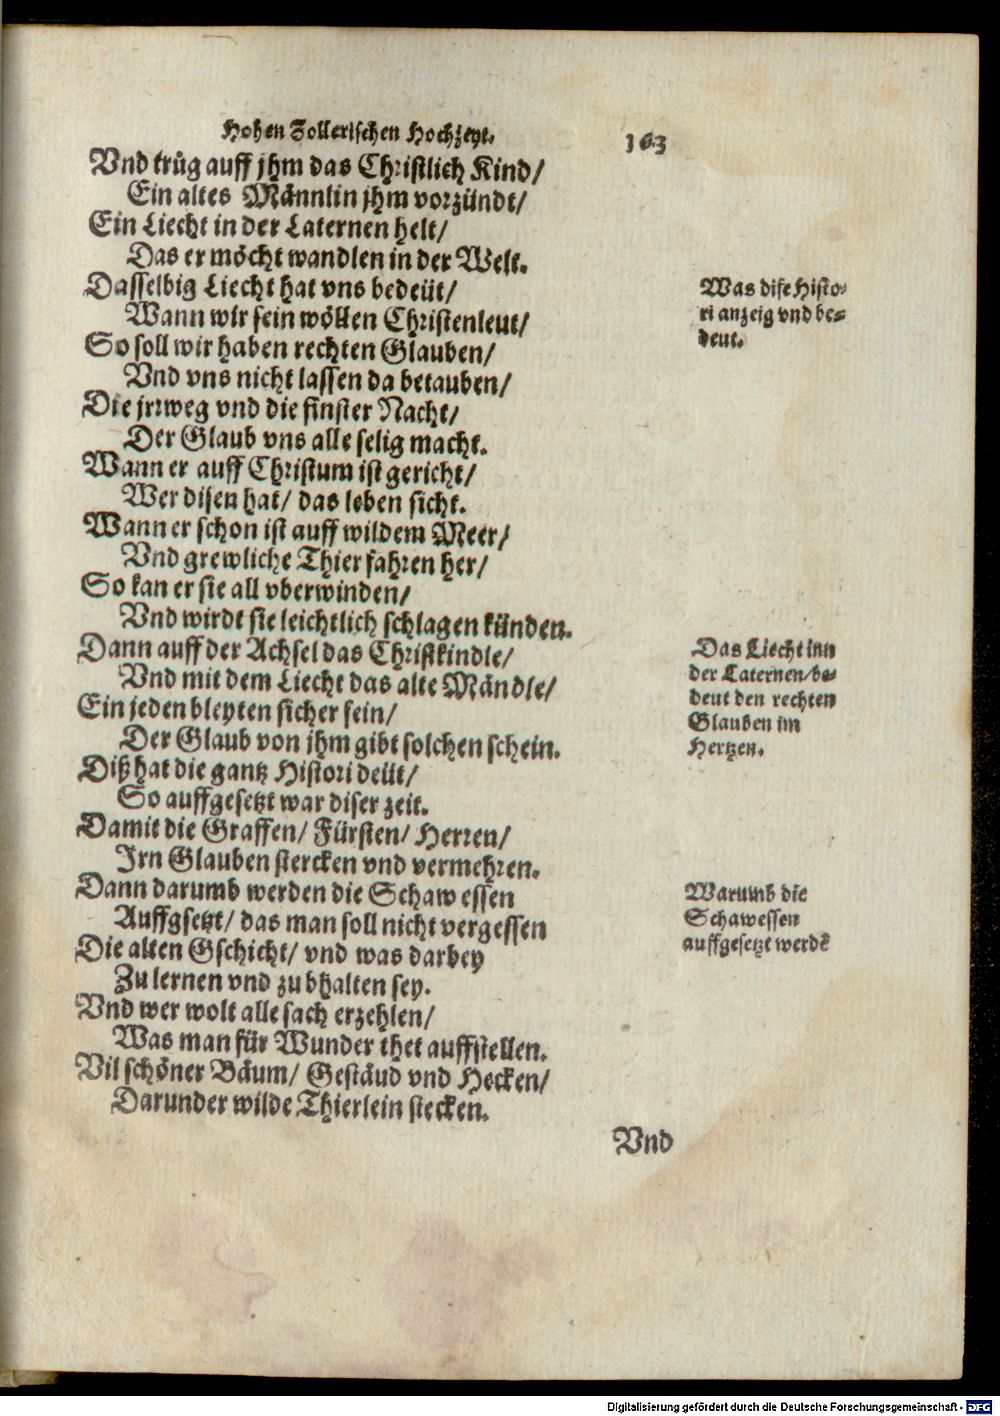 Hohen Zollerischen Hochzeyt. 163
Vnd trůg auff jhm das Christlich Kind/
Ein altes Männlin jhm vorzündt/
Ein Liecht in der Laternen helt/
Das er möcht wandlen in der Welt.
Dasselbig Liecht hat vns bedeüt/
Wann wir sein wöllen Christenleut/
So soll wir haben rechten Glauben/
Vnd vns nicht lassen da betauben/
Die jrrweg vnd die finster Nacht/
Der Glaub vns alle selig macht.
Wann er auff Christum ist gericht/
Wer disen hat/ das leben sicht.
Wann er schon ist auff wildem Meer/
Vnd grewliche Thier fahren her/
So kan er sie all vberwinden/
Vnd wirdt sie leichtlich schlagen künden.
Dann auff der Achsel das Christkindle/
Vnd mit dem Liecht das alte Mändle/
Ein jeden bleyten sicher fein/
Der Glaub von jhm gibt solchen schein.
Diß hat die gantz Histori deüt/
So auffgesetzt war diser zeit.
Damit die Graffen/ Fürsten/ Herren/
Irn Glauben stercken vnd vermehren.
Dann darumb werden die Schaw essen
Auffgsetzt/ das man soll nicht vergessen
Die alten Gschicht/ vnd was darbey
Zu lernen vnd zu bhalten sey.
Vnd wer wolt alle sach erzehlen/
Was man für Wunder thet auffstellen.
Vil schöner Bäum/ Gestäud vnd Hecken/
Darunder wilde Thierlein stecken.
Vnd
Was dise Histo-
ri anzeig vnd be-
deut.
Das Liecht inn
der Laternen/be-
deut den rechten
Glauben im
Hertzen.
Warumb die
Schawessen
auffgesetzt werdē
Digitalisierung gefördert durch die Deutsche Forschungsgemeinschaft - DFG